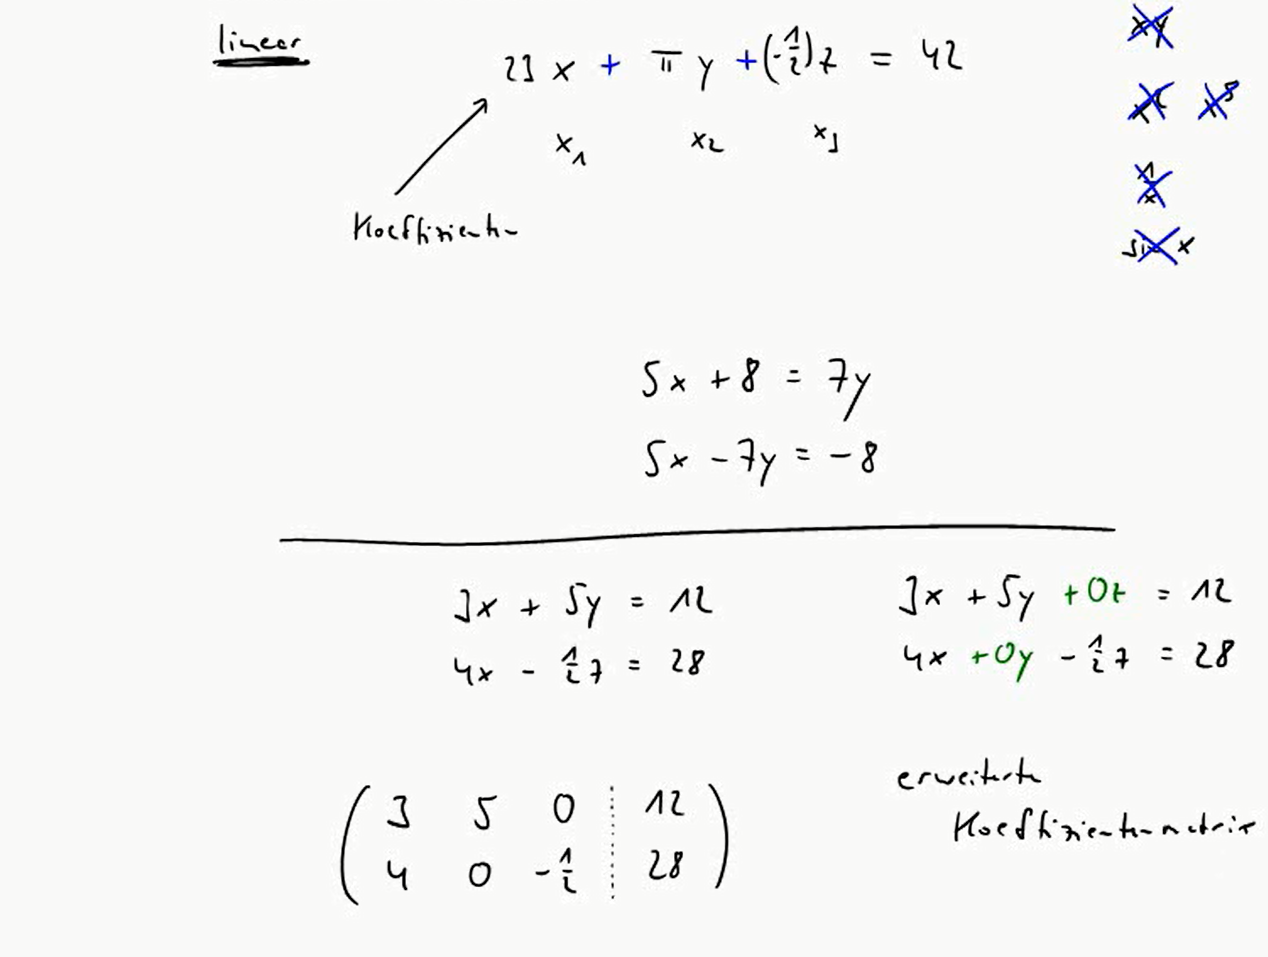 linear
23 x + π y + (-1/2) z = 42
x₁ x₂ x₃
Koeffizienten
xy
x² x⁵
1/x
sin x
5x + 8 = 7y
5x - 7y = -8
3x + 5y = 12
4x - 1/2 z = 28
3x + 5y + 0z = 12
4x + 0y - 1/2 z = 28
( 3 5 0 ⋮ 12 )
( 4 0 -1/2 ⋮ 28 )
erweiterte
Koeffizientenmatrix